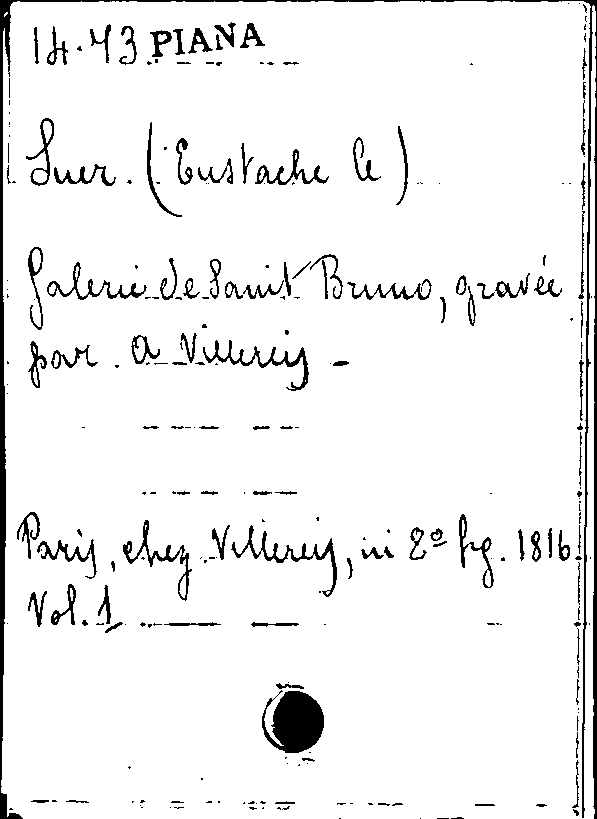 14.73 PIANA
Suer. (Eustache le)
Galerie de Saint Bruno, gravée
par. A Villereij -
Paris, chez Villereij, in 8º fig. 1816
Vol. 1